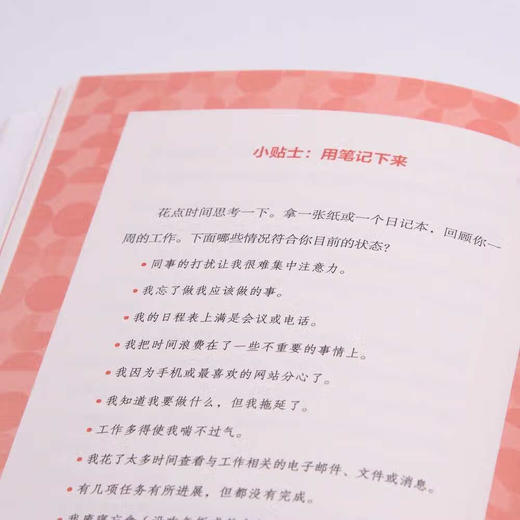 小贴士：用笔记下来
花点时间思考一下。拿一张纸或一个日记本，回顾你一
周的工作。下面哪些情况符合你目前的状态？
•同事的打扰让我很难集中注意力。
•我忘了做我应该做的事。
•我的日程表上满是会议或电话。
•我把时间浪费在了一些不重要的事情上。
•我因为手机或最喜欢的网站分心了。
•我知道我要做什么，但我拖延了。
•工作多得使我喘不过气。
•我花了太多时间查看与工作相关的电子邮件、文件或消息。
•有几项任务有所进展，但都没有完成。